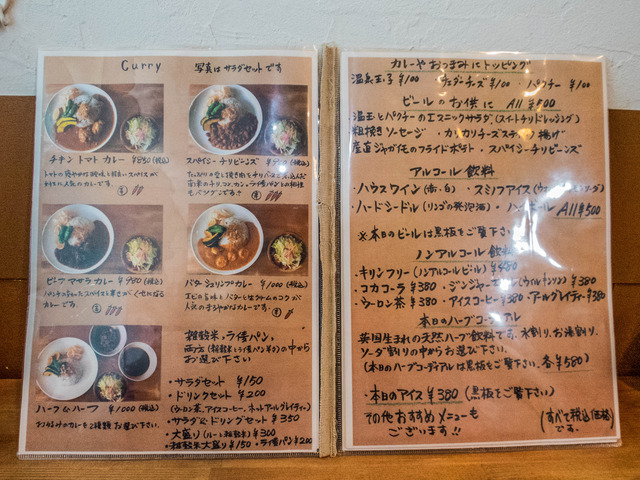 Curry 写真はサラダセットです
チキントマトカレー ¥880(税込)
スパイシーチリビーンズ
ビーフマサラカレー ¥980(税込)
カレーです
バターシュリンプカレー ¥1000(税込)
エビの旨味とバターと生クリームのコクが
人気のまろやかなカレーです。
ハーフ&ハーフ ¥1000(税込)
お好みのカレーを2種類お選び下さい。
雑穀米、ライ麦パン、
両方(雑穀米とライ麦パン半々)の中から
お選び下さい
・サラダセット ¥150
・ドリンクセット ¥200
(ウーロン茶、アイスコーヒー、ホットアールグレイティー)
・サラダ&ドリンクセット ¥350
・大盛り(ルーと雑穀米) ¥300
・雑穀米大盛り ¥150 ・ライ麦パン ¥200
カレーやおつまみにトッピング
温泉玉子 ¥100 ・チェダーチーズ ¥100 ・パクチー ¥100
ビールのお供に All ¥500
・温玉とパクチーのエスニックサラダ(スイートチリドレッシング)
粗挽きソーセージ ・カリカリチーズスティック揚げ
産直ジャガイモのフライドポテト ・スパイシーチリビーンズ
アルコール飲料
・ハウスワイン(赤・白) ・スミノフアイス
・ハードシードル(リンゴの発泡酒) ・ハイボール All ¥500
※本日のビールは黒板をご覧下さい
ノンアルコール飲料
・キリンフリー(ノンアルコールビール) ¥480
・コカコーラ ¥380 ・ジンジャーエール(ウィルキンソン) ¥380
・ウーロン茶 ¥380 ・アイスコーヒー ¥380 ・アールグレイティー ¥380
本日のハーブコーディアル
英国生まれの天然ハーブ飲料です。水割り、お湯割り、
ソーダ割りの中からお選び下さい。
(本日のハーブコーディアルは黒板をご覧下さい。各¥580)
・本日のアイス ¥380(黒板をご覧下さい)
その他おすすめメニューも
ございます!!
(すべて税込価格)
です。